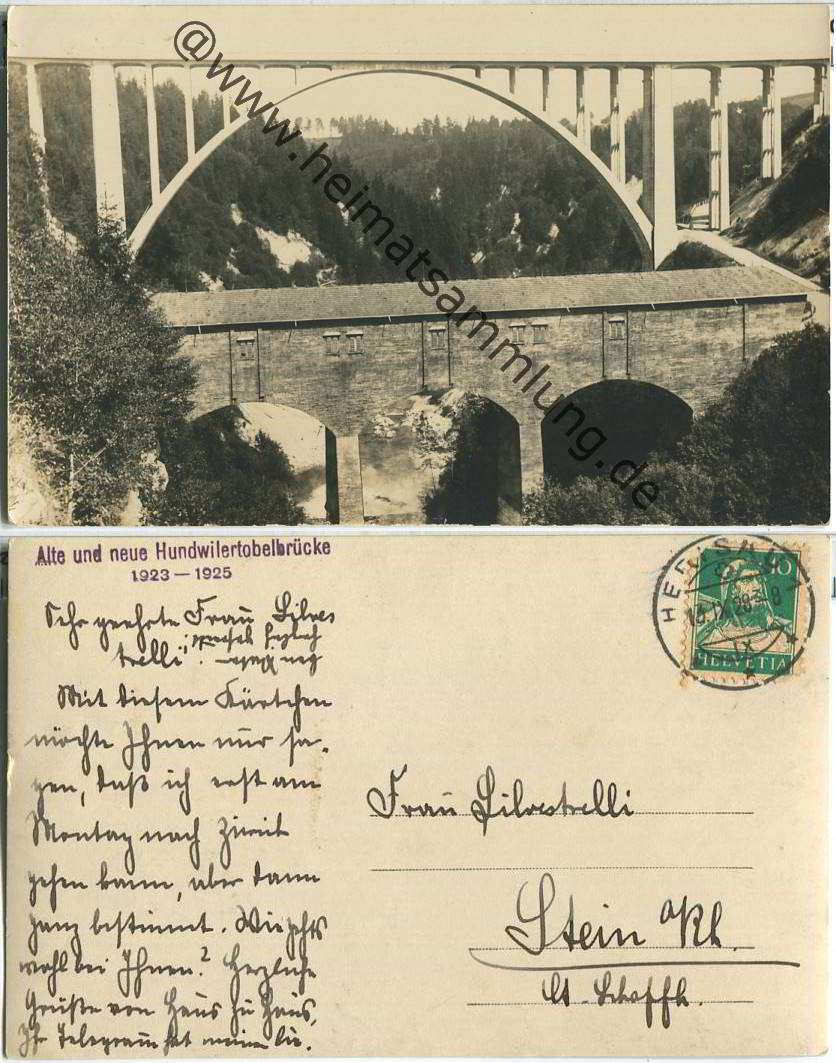 @www.heimatsammlung.de
Alte und neue Hundwilertobelbrücke
1923 — 1925
Sehr geehrte Frau Silves
trelli!
Mit diesem Kärtchen
möchte Ihnen nur sa-
gen, daß ich erst am
Montag nach Zürich
gehen kann, aber dann
ganz bestimmt. Wie gehts
wohl bei Ihnen? Herzliche
Grüße von Haus zu Haus,
Ihr Telegramm hat
HERISAU
13.IX.28
IX
10
HELVETIA
Frau Silvestrelli
Stein a/Rh.
Ct. Schaffh.